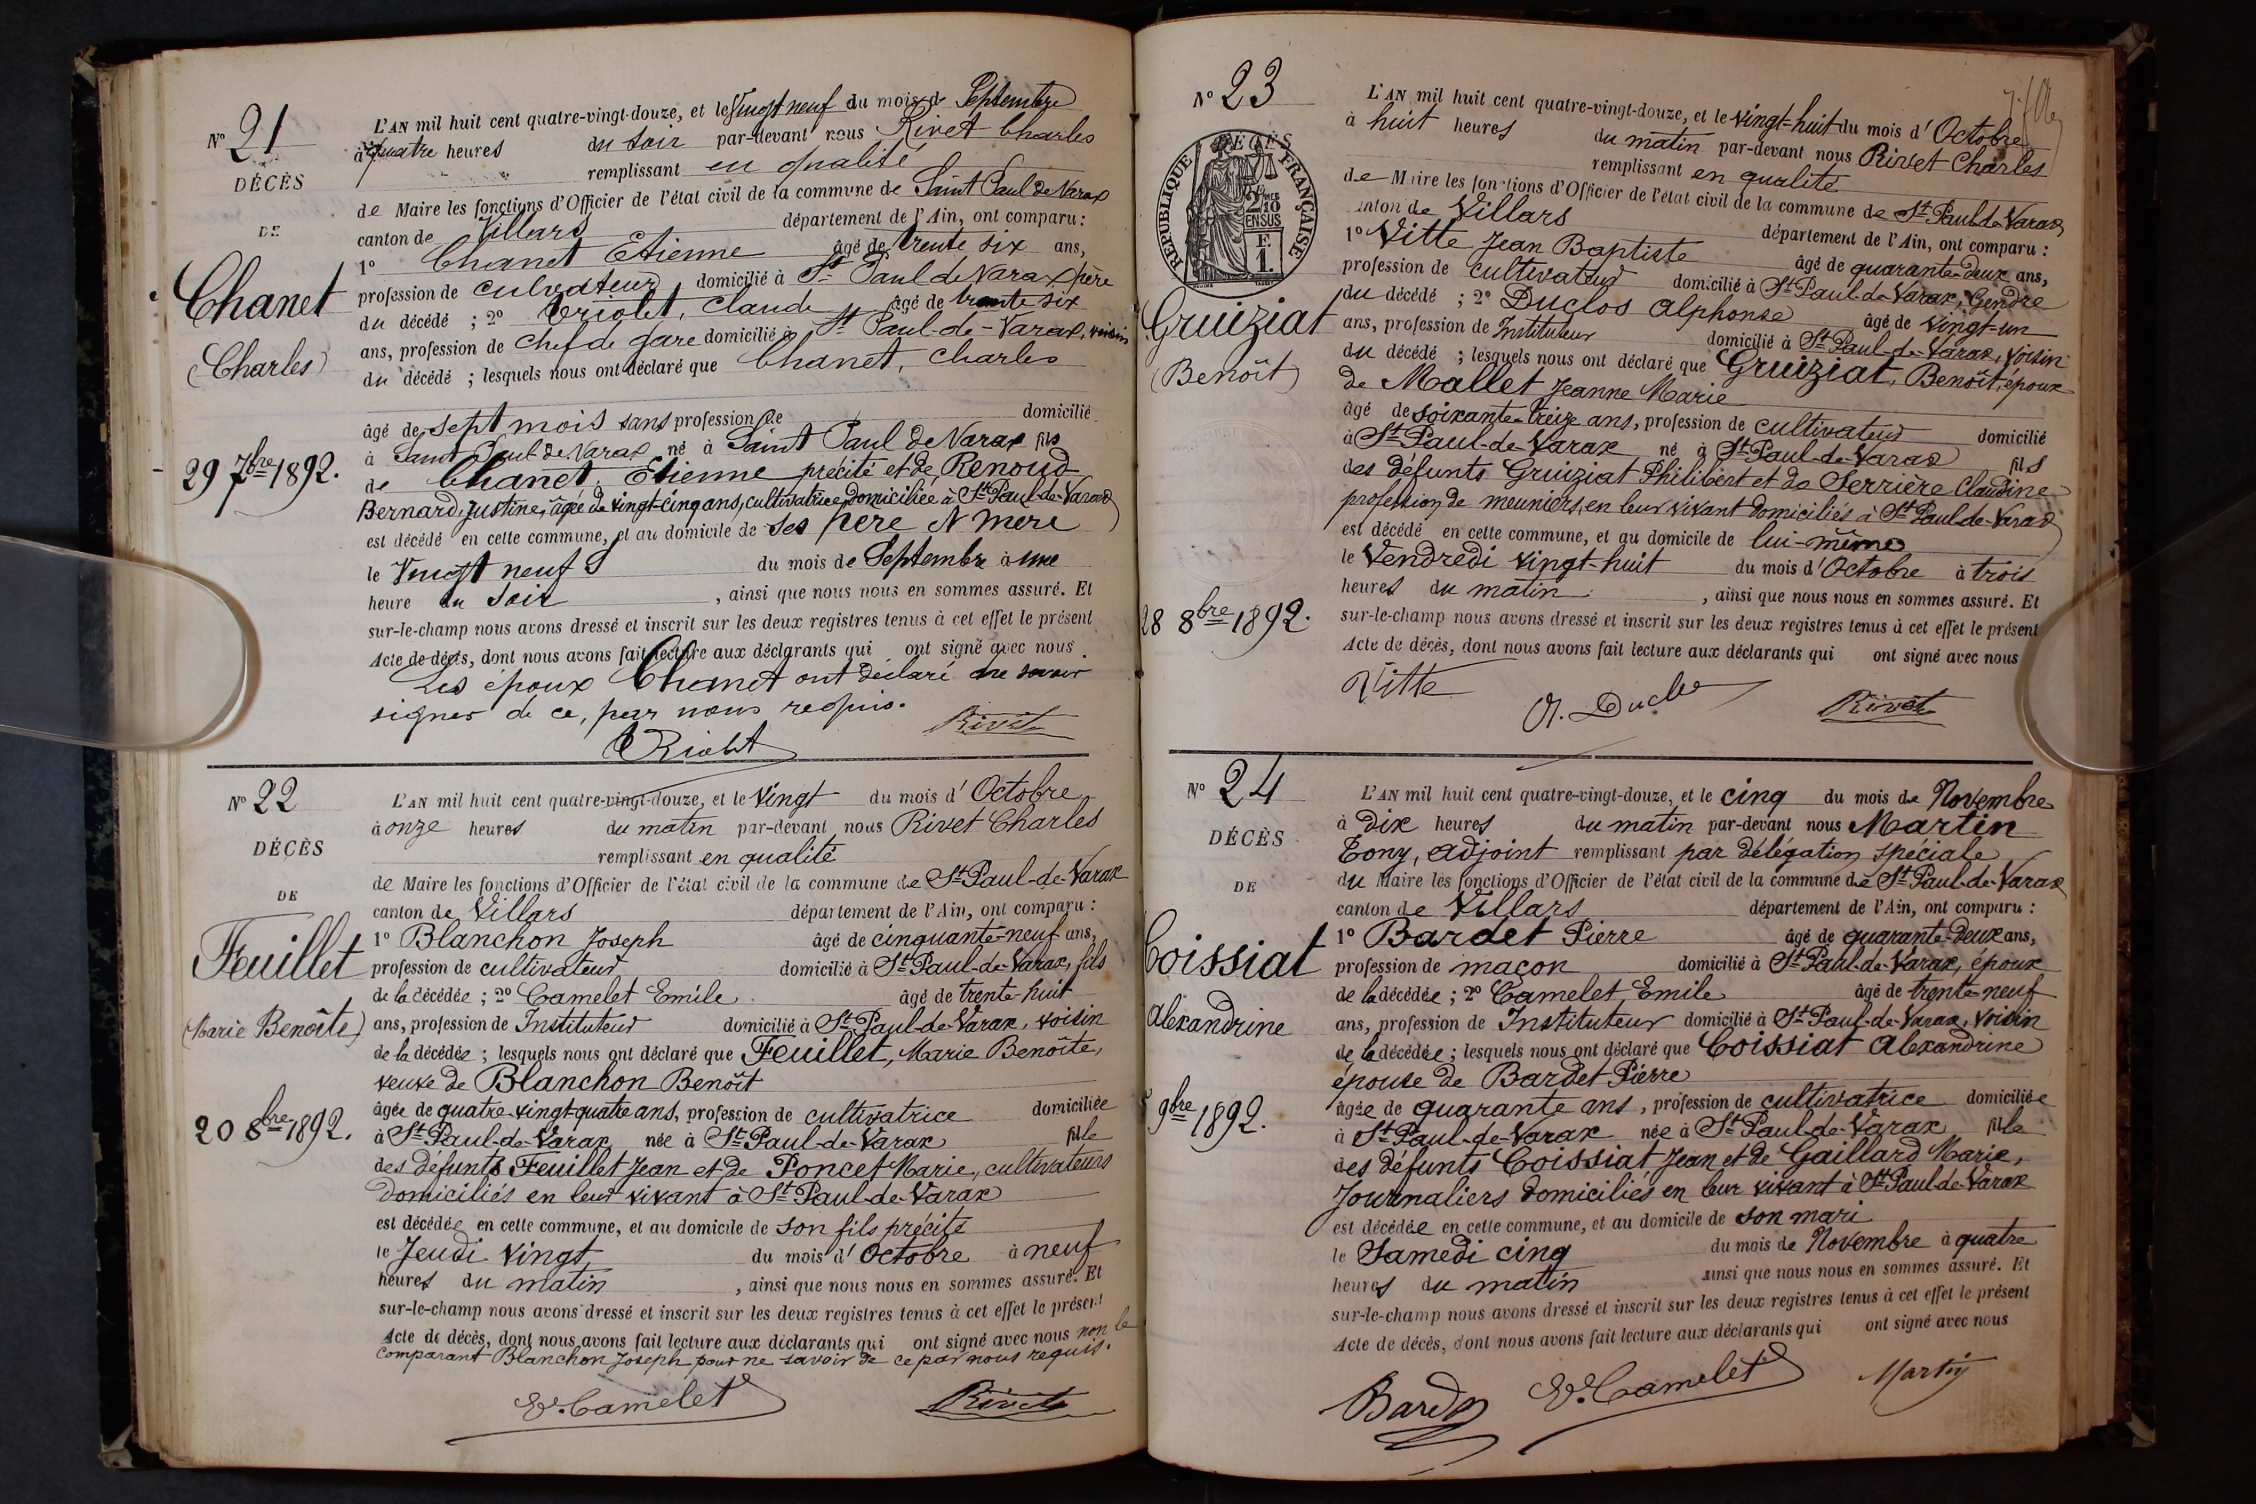 N° 21
DÉCÈS
DE
Chanet
(Charles)
29 7bre 1892.
L'AN mil huit cent quatre-vingt-douze, et le Vingt neuf du mois de Septembre
à quatre heures du soir par-devant nous Rivet Charles
remplissant en qualité
de Maire les fonctions d'Officier de l'état civil de la commune de Saint Paul de Varax
canton de Villars département de l'Ain, ont comparu :
1° Chanet Etienne âgé de trente six ans,
profession de cultivateur domicilié à St Paul de Varax père
du décédé ; 2° Claude âgé de trente six
ans, profession de chef de gare domicilié à St Paul-de-Varax, voisin
du décédé ; lesquels nous ont déclaré que Chanet, Charles
âgé de sept mois sans profession de domicilié
à Saint Paul de Varax né à Saint Paul de Varax fils
de Chanet, Etienne précité et de Renoud
Bernarde Justine, âgée de vingt-cinq ans, cultivatrice domiciliée à St Paul-de-Varax
est décédé en cette commune, et au domicile de ses père et mère
le Vingt neuf du mois de Septembre à une
heure du soir , ainsi que nous nous en sommes assuré. Et
sur-le-champ nous avons dressé et inscrit sur les deux registres tenus à cet effet le présent
Acte de décès, dont nous avons fait lecture aux déclarants qui ont signé avec nous.
Les époux Chanet ont déclaré ne savoir
signer de ce, par nous requis.
Rivet
N° 22
DÉCÈS
DE
Feuillet
(Marie Benoîte)
20 8bre 1892.
L'AN mil huit cent quatre-vingt-douze, et le Vingt du mois d'Octobre
à onze heures du matin par-devant nous Rivet Charles
remplissant en qualité
de Maire les fonctions d'Officier de l'état civil de la commune de St Paul-de-Varax
canton de Villars département de l'Ain, ont comparu :
1° Blanchon Joseph âgé de cinquante-neuf ans,
profession de cultivateur domicilié à St Paul-de-Varax, fils
de la décédée ; 2° Camelet Emile âgé de trente-huit
ans, profession de Instituteur domicilié à St Paul-de-Varax, voisin
de la décédée ; lesquels nous ont déclaré que Feuillet, Marie Benoîte,
veuve de Blanchon Benoît
âgée de quatre-vingt-quatre ans, profession de cultivatrice domiciliée
à St Paul-de-Varax née à St Paul-de-Varax fille
des défunts Feuillet Jean et de Poncet Marie, cultivateurs
domiciliés en leur vivant à St Paul-de-Varax
est décédée en cette commune, et au domicile de son fils précité
le Jeudi vingt du mois d'Octobre à neuf
heures du matin , ainsi que nous nous en sommes assuré. Et
sur-le-champ nous avons dressé et inscrit sur les deux registres tenus à cet effet le présent
Acte de décès, dont nous avons fait lecture aux déclarants qui ont signé avec nous non le
comparant Blanchon Joseph pour ne savoir de ce par nous requis.
E. Camelet Rivet
N° 23
DÉCÈS
RÉPUBLIQUE FRANÇAISE
2/10 EN SUS
F. 1.
Gruiziat
(Benoît)
28 8bre 1892.
L'AN mil huit cent quatre-vingt-douze, et le vingt-huit du mois d'Octobre
à huit heures du matin par-devant nous Rivet Charles
remplissant en qualité
de Maire les fonctions d'Officier de l'état civil de la commune de St Paul-de-Varax
canton de Villars département de l'Ain, ont comparu :
1° Vitte Jean Baptiste âgé de quarante-deux ans,
profession de cultivateur domicilié à St Paul-de-Varax, Gendre
du décédé ; 2° Duclos Alphonse âgé de vingt-un
ans, profession de Instituteur domicilié à St Paul-de-Varax, voisin
du décédé ; lesquels nous ont déclaré que Gruiziat, Benoît, époux
de Mallet Jeanne Marie
âgé de soixante-treize ans, profession de cultivateur domicilié
à St Paul-de-Varax né à St Paul-de-Varax fils
des défunts Gruiziat Philibert et de Serrière Claudine
profession de meuniers, en leur vivant domiciliés à St Paul-de-Varax
est décédé en cette commune, et au domicile de lui-même
le Vendredi vingt-huit du mois d'Octobre à trois
heures du matin , ainsi que nous nous en sommes assuré. Et
sur-le-champ nous avons dressé et inscrit sur les deux registres tenus à cet effet le présent
Acte de décès, dont nous avons fait lecture aux déclarants qui ont signé avec nous
Vitte A. Duclos Rivet
N° 24
DÉCÈS
DE
Coissiat
Alexandrine
9bre 1892.
L'AN mil huit cent quatre-vingt-douze, et le cinq du mois de Novembre
à dix heures du matin par-devant nous Martin
Tony, adjoint remplissant par délégation spéciale
du Maire les fonctions d'Officier de l'état civil de la commune de St Paul-de-Varax
canton de Villars département de l'Ain, ont comparu :
1° Bardet Pierre âgé de quarante-deux ans,
profession de maçon domicilié à St Paul-de-Varax, époux
de la décédée ; 2° Camelet, Emile âgé de trente-neuf
ans, profession de Instituteur domicilié à St Paul-de-Varax, voisin
de la décédée ; lesquels nous ont déclaré que Coissiat Alexandrine
épouse de Bardet Pierre
âgée de quarante ans, profession de cultivatrice domiciliée
à St Paul-de-Varax née à St Paul-de-Varax fille
des défunts Coissiat Jean et de Gaillard Marie,
Journaliers domiciliés en leur vivant à St Paul-de-Varax
est décédée en cette commune, et au domicile de son mari
le Samedi cinq du mois de Novembre à quatre
heures du matin ainsi que nous nous en sommes assuré. Et
sur-le-champ nous avons dressé et inscrit sur les deux registres tenus à cet effet le présent
Acte de décès, dont nous avons fait lecture aux déclarants qui ont signé avec nous
Bardet E. Camelet Martin